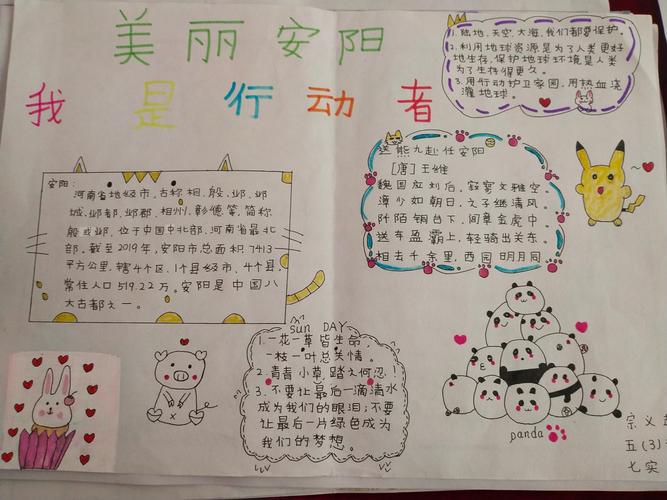 美丽安阳
我是行动者
1.陆地、天空、大海,我们都要保护。
2.利用地球资源是为了人类更好
地生存,保护地球环境是人类
为了生存得更久。
3.用行动护卫家园,用热血浇
灌地球。
安阳:
河南省地级市,古称相、殷、邺、邺
城、邺都、邺郡、相州、彰德等,简称
殷或邺,位于中国中北部,河南省最北
部。截至2019年,安阳市总面积7413
平方公里,辖4个区、1个县级市、4个县,
常住人口519.22万。安阳是中国八
大古都之一。
送熊九赴任安阳
[唐]王维
魏国应刘后,寂寞文雅空
漳少如朝日,之子继清风。
阡陌铜台下,闾阎金虎中。
送车盈灞上,轻骑出关东。
相去千余里,西园明月同
sun DAY
1.一花一草皆生命,
一枝一叶总关情。
2.青青小草,踏之何忍!
3.不要让最后一滴清水
成为我们的眼泪;不要
让最后一片绿色成为
我们的梦想。
panda
宗义
五(3)
七实